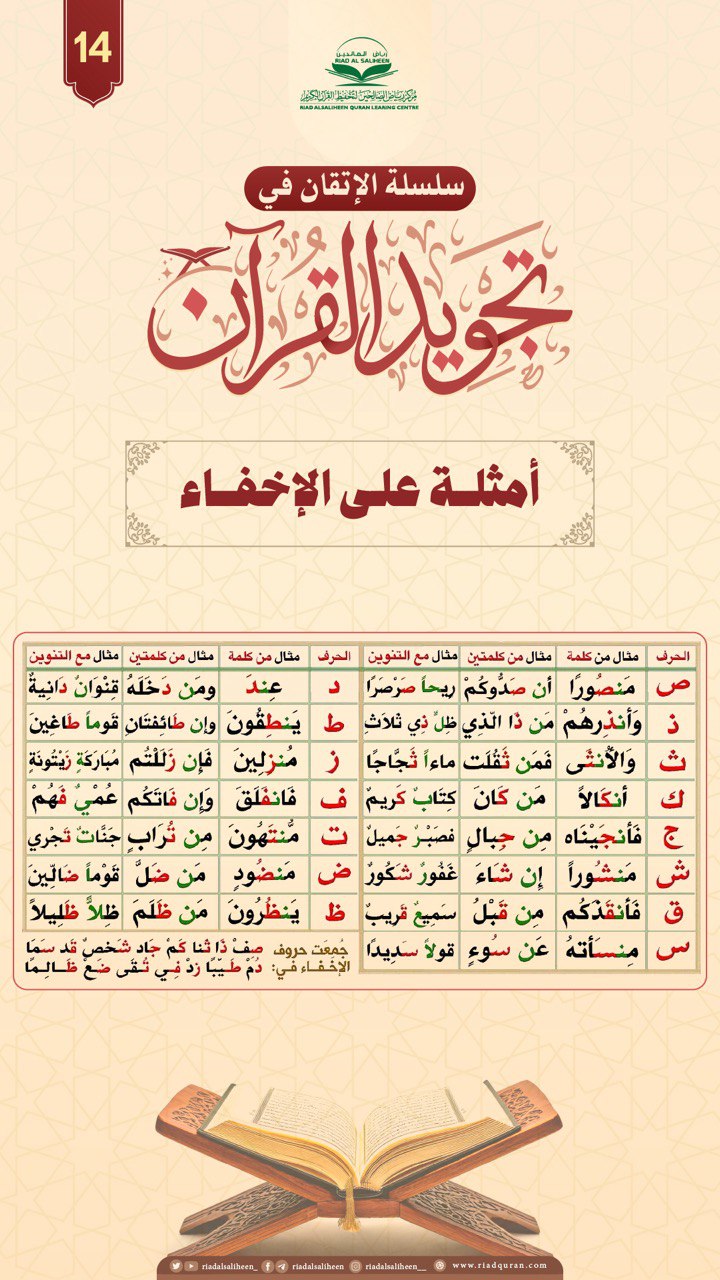 14
رياض الصالحين
RIAD AL SALIHEEN
مركز رياض الصالحين لتحفيظ القرآن الكريم
RIAD ALSALIHEEN QURAN LEARING CENTRE
سلسلة الإتقان في
تجويد القرآن
أمثلة على الإخفاء
الحرف مثال من كلمة مثال من كلمتين مثال مع التنوين الحرف مثال من كلمة مثال من كلمتين مثال مع التنوين
ص مَنصُورًا أن صَدُّوكُمْ ريحاً صَرْصَرًا د عِندَ ومَن دَخَلَهُ قِنْوَانٌ دَانِيةٌ
ذ وَأَنذِرهُمْ مَن ذَا الّذِي ظِلٍّ ذِي ثَلَاثِ ط يَنطِقُونَ وإن طَائِفتَانِ قَوماً طَاغِينَ
ث وَالأُنثَى فَمَن ثَقُلَت ماءاً ثَجَّاجًا ز مُنزِلِينَ فَإِن زَلَلْتُم مُبَارَكَةٍ زَيْتُونَةٍ
ك أنكَالاً مَن كَانَ كِتَابٌ كَريمٌ ف فَانفَلَقَ وَإِن فَاتَكُم عُمْيٌ فَهُمْ
ج فَأنجَيْنَاه مِن جِبالٍ فصَبْرٌ جَميلٌ ت مُنتَهُونَ مِن تُرَابٍ جَنَّاتٌ تَجْري
ش مَنشُوراً إِن شَاءَ غَفُورٌ شَكُورٌ ض مَنضُودٍ مَن ضَلَّ قَوْماً ضَالِّينَ
ق فَأنقَذَكُم مِن قَبْلُ سَمِيعٌ قَريبٌ ظ يَنظُرُونَ مَن ظَلَمَ ظِلاًّ ظَلِيلاً
س مِنسَأتهُ عَن سُوءٍ قولاً سَدِيدًا
جُمِعَت حروف الإخْفَاء في:
صِفْ ذَا ثَنا كَمْ جَاد شَخصٌ قَد سَمَا
دُمْ طَيّبًا زدْ فِي تُقَى ضَعْ ظَالِمًا
riadalsaliheen_ riadalsaliheen riadalsaliheen__ www.riadquran.com